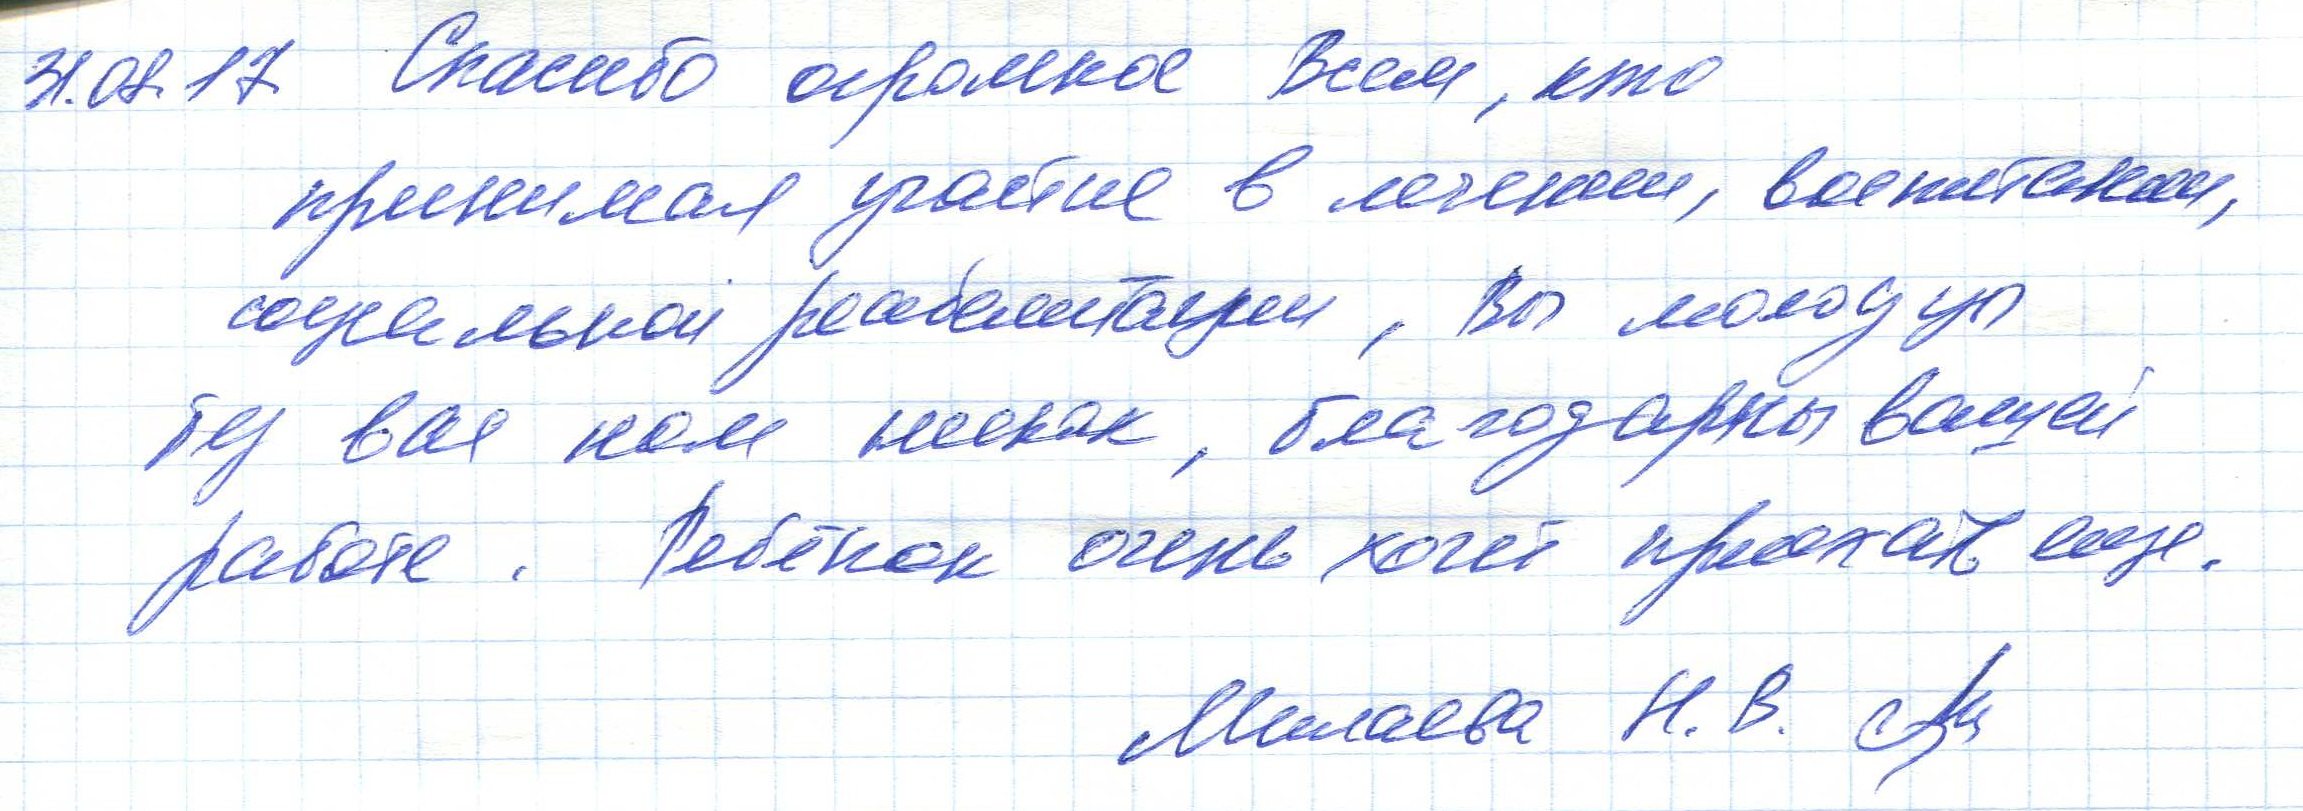 31.08.17 Спасибо огромное Всем, кто
принимал участие в лечении, воспитании,
социальной реабилитации, Вы молодцы
без вас нам никак, благодарны вашей
работе. Ребёнок очень хочет приехать еще.
Милаева Н. В.